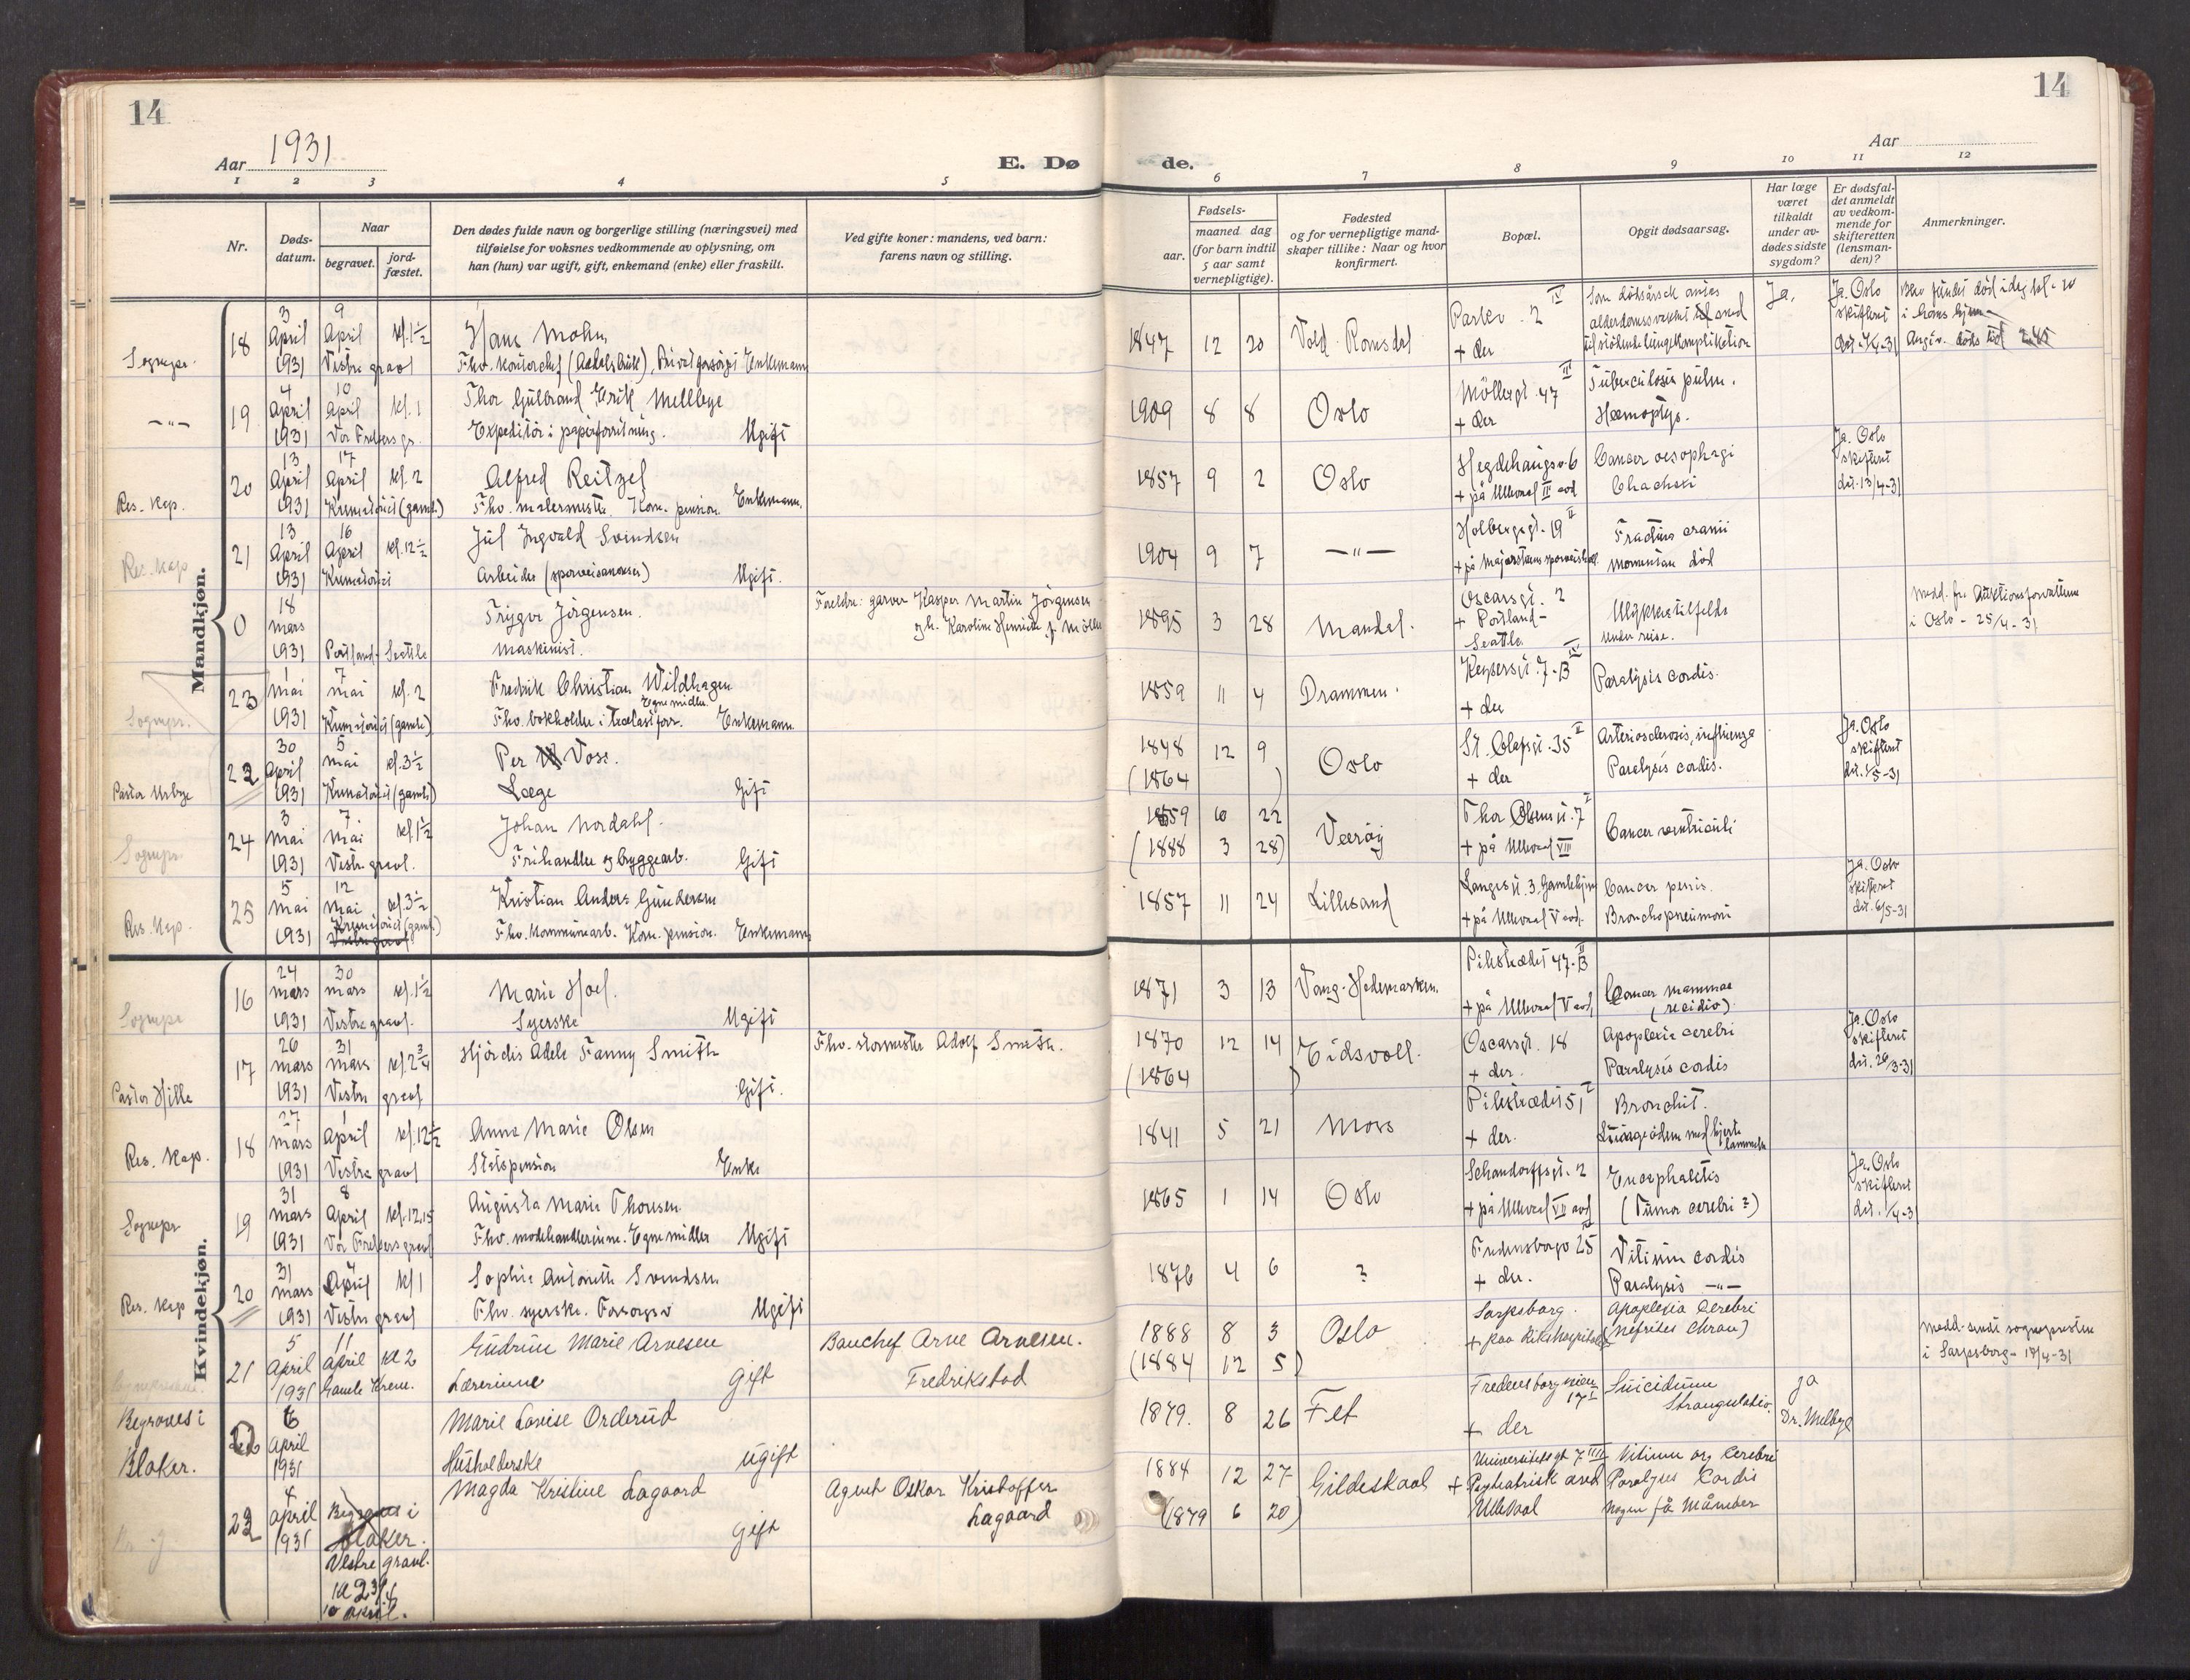 14
14
Aar 1931
E. Dø
de.
Aar
1 2 3 4 5 6 7 8 9 10 11 12
Nr.
Døds-
datum.
Naar
begravet.
jord-
fæstet.
Den dødes fulde navn og borgerlige stilling (næringsvei) med
tilføielse for voksnes vedkommende av oplysning, om
han (hun) var ugift, gift, enkemand (enke) eller fraskilt.
Ved gifte koner: mandens, ved barn:
farens navn og stilling.
Fødsels-
aar.
maaned dag
(for barn indtil
5 aar samt
vernepligtige).
Fødested
og for vernepligtige mand-
skaper tillike: Naar og hvor
konfirmert.
Bopæl.
Opgit dødsaarsag.
Har læge
været
tilkaldt
under av-
dødes sidste
sygdom?
Er dødsfal-
det anmeldt
av vedkom-
mende for
skifteretten
(lensman-
den)?
Anmerkninger.
Mandkjøn.
Sognepr.
18
3 April 1931
9 April kl. 1½
Vestre gravl
Hans Mohn
Fhv. kontorchef Enkemann
1847 12 20
Vold. Romsdal
Parkv. 2 IV
+ der
Ja.
Ja. Oslo
skifterett
i hans hjem
-"-
19
4 April 1931
10 April kl. 1
Vor Frelsers gr.
Thor Gulbrand Erik Mellbye
Expeditör i papirforretning. Ugift
1909 8 8
Oslo
Möllergt. 47 III
+ der
Tuberculosis pulm.
Hæmoptys.
Res. Kap.
20
13 April 1931
17 April kl. 2
Krematoriet (gamle)
Alfred Reitzel
Fhv. malermester. Kom. pension Enkemann.
1857 9 2
Oslo
Hegdehaugsv. 6
+ på Ullevaal II avd
Cancer oesophagi
Ja. Oslo
skifterett
dat. 13/4-31
Res. Kap
21
13 April 1931
16 April kl. 12½
Krematoriet
Jul Ingvald Svindsen
Arbeider Ugift.
1904 9 7
-"-
Holbergsgt. 19 II
Fractura cranii
momentan död
0
18 mars 1931
Portland - Seattle
Trygve Jörgensen.
maskinist.
Foreldre: garver Kasper Martin Jörgensen
1895 3 28
Mandal.
Oscarsgt. 2
+ Portland -
Seattle
Ulykkestilfelde
under reise.
i Oslo - 25/4-31
Sognepr.
23
1 mai 1931
7 mai kl. 2
Krematoriet (gamle)
Fredrik Christian Wildhagen
Egne midler
Fhv. bokholder i trælastforr. Enkemann
1859 11 4
Drammen.
Keysersgt. 7. B IV
+ der
Paralysis cordis.
Pastor Urbye
22
30 April 1931
5 mai kl. 3½
Krematoriet (gamle)
Per Voss.
Læge Gift
1848 12 9
(1864 )
Oslo
St. Olafsgt. 35 II
+ der
Arteriosclerosis, influenza
Paralysis cordis.
Ja. Oslo
skifterett
dat. 1/5-31
Sognepr.
24
3 mai 1931
7. mai kl 1½
Vestre gravl.
Johan Nordahl.
Frihandler og bryggearb. Gift
1859 6 22
(1888 3 28)
Værøy
Thor Olsens gt. 7 I
+ på Ullevaal VIII
Cancer ventriculi
Res. Kap.
25
5 mai 1931
12 mai kl. 3½
Krematoriet (gamle)
Kristian Anders Gundersen
Fhv. kommunearb. Kom. pension. Enkemann
1857 11 24
Lillesand
Langes gt. 3. Gamlehjem
+ på Ullevaal V avd.
Cancer penis.
Bronchopneumoni
Ja. Oslo
skifterett
dat. 6/5-31
Kvindekjøn.
Sognepr
16
24 mars 1931
30 mars kl. 1½
Vestre gravl.
Marie Hoel.
Syerske Ugift
1871 3 13
Vang. Hedemarken.
Pilestrædet 47. B II
+ på Ullevaal V avd,
Cancer mammae
(recidiv)
Pastor Hille
17
26 mars 1931
31 mars kl. 2¾
Vestre gravl
Hjördis Adele Fanny Smith
Gift.
Adolf Smith.
1870 12 14
(1864 )
Eidsvoll.
Oscarsgt. 18
+ der.
Apoplexia cerebri
Paralysis cordis
Ja. Oslo
skifterett
dat. 26/3-31
Res. Kap.
18
27 mars 1931
1 April kl. 12½
Vestre gravl
Anna Marie Olsen
Statspension Enke
1841 5 21
Moss
Pilestrædet 51 I
+ der.
Bronchit.
Lungeödem med hjerte
lammelse
Sognepr
19
31 mars 1931
8 April kl. 12.15
Vor Frelsers gravl
Augusta Marie Thoresen
Fhv. modehandlerinne. Egne midler Ugift
1865 1 14
Oslo
Schandorffsgt. 2
+ på Ullevaal VII avd
Encephalitis
(Tumor cerebri?)
Ja. Oslo
skifterett
Res. Kap
20
31 mars 1931
4 April kl 1
Vestre gravl
Sophie Antonette Svendsen
Fhv. syerske. Forsorgsv Ugift
1876 4 6
?
Fredensborgv 25
+ der.
Vitium cordis
Paralysis -"-
21
5 April 1931
11 April kl 2
Gamle Krem.
Gudrun Marie Arnesen
Lærerinne Gift
Banchef Arne Arnesen.
Fredrikstad
1888 8 3
(1884 12 5)
Oslo
Sarpsborg.
+ paa Rikshospitalet
Apoplexia Cerebri
(nefrites chron)
Medd. sendt sognepresten
i Sarpsborg - 18/4-31
Begraves i
Blaker.
22
6 April 1931
Marie Lovise Orderud
Husholderske Ugift
1879. 8 26
Fet
Fredensborgveien
17 I
+ der
Suicidium
Strangulatio.
Ja
Dr. Melbye
23
4 April 1931
Begraves i
Blaker.
Vestre gravl.
kl 2¾
10 April.
Magda Kristine Lagaard
Gift
Agent Oskar Kristoffer
Lagaard
1884 12 27
(1879 6 20)
Gildeskaal
Universitetsgt 7 IIII
+ Psykiatrisk avd
Ullevaal
Vitium org Cerebri
Paralysis Cordis
Nogen få Måneder